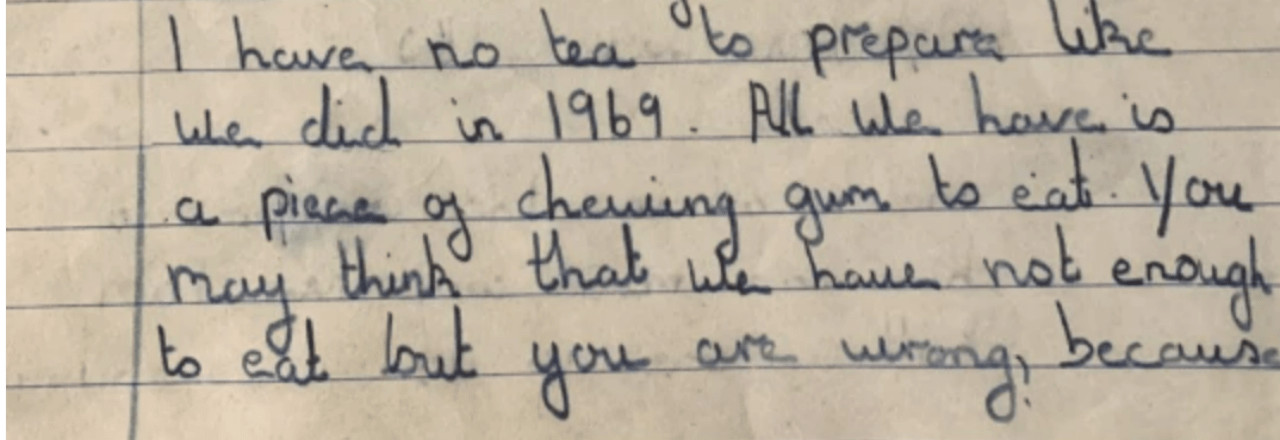 I have no tea to prepare like
we did in 1969. All we have is
a piece of chewing gum to eat. You
may think that we have not enough
to eat but you are wrong, because